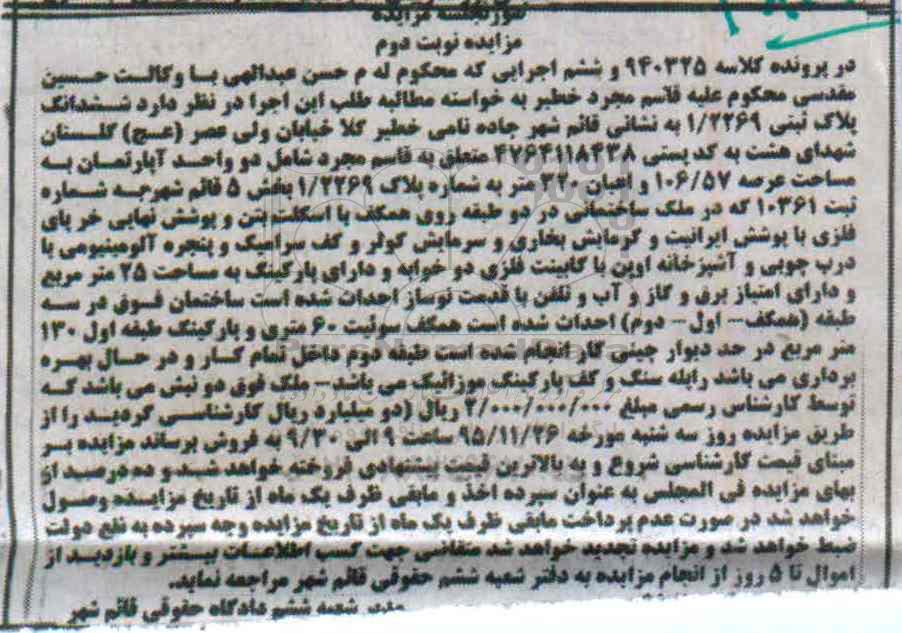 صورتجلسه مزایده
مزایده نوبت دوم
در پرونده کلاسه ۹۴۰۳۲۵ و ششم اجرایی که محکوم له م حسن عبدالهی با وکالت حسین
مقدسی محکوم علیه قاسم مجرد خطیر به خواسته مطالبه طلب این اجرا در نظر دارد ششدانگ
پلاک ثبتی ۱/۲۲۶۹ به نشانی قائم شهر جاده نامی خطیر کلا خیابان ولی عصر (عج) گلستان
شهدای هشت به کد پستی ۴۷۶۴۱۱۸۴۳۸ متعلق به قاسم مجرد شامل دو واحد آپارتمان به
مساحت عرصه ۱۰۶/۵۷ و اعیان ۳۲۰ متر به شماره پلاک ۱/۲۲۶۹ بخش ۵ قائم شهر به شماره
ثبت ۱۰۳۶۱ که در ملک ساختمانی در دو طبقه روی همکف با اسکلت بتن و پوشش نهایی خر پای
فلزی با پوشش ایرانیت و گرمایش بخاری و سرمایش کولر و کف سرامیک و پنجره آلومینیومی با
درب چوبی و آشپزخانه اوپن با کابینت فلزی دو خوابه و دارای پارکینگ به مساحت ۲۵ متر مربع
و دارای امتیاز برق و گاز و آب و تلفن با قدمت نوساز احداث شده است ساختمان فوق در سه
طبقه (همکف– اول– دوم) احداث شده است همکف سوئیت ۶۰ متری و پارکینگ طبقه اول ۱۳۰
متر مربع در حد دیوار چینی کار انجام شده است طبقه دوم داخل تمام کار و در حال بهره
برداری می باشد راپله سنگ و کف پارکینگ موزائیک می باشد– ملک فوق دو نبش می باشد که
توسط کارشناس رسمی مبلغ ۲/۰۰۰/۰۰۰/۰۰۰ ریال (دو میلیارد ریال کارشناسی گردید را از
طریق مزایده روز سه شنبه مورخه ۹۵/۱۱/۲۶ ساعت ۹ الی ۹/۳۰ به فروش برساند مزایده بر
مبنای قیمت کارشناسی شروع و به بالاترین قیمت پیشنهادی فروخته خواهد شد و ده درصد از
بهای مزایده فی المجلس به عنوان سپرده اخذ و مابقی ظرف یک ماه از تاریخ مزایده وصول
خواهد شد در صورت عدم پرداخت مابقی ظرف یک ماه از تاریخ مزایده وجه سپرده به نفع دولت
ضبط خواهد شد و مزایده تجدید خواهد شد متقاضی جهت کسب اطلاعات بیشتر و بازدید از
اموال تا ۵ روز از انجام مزایده به دفتر شعبه ششم حقوقی قائم شهر مراجعه نماید.
مدیر شعبه ششم دادگاه حقوقی قائم شهر